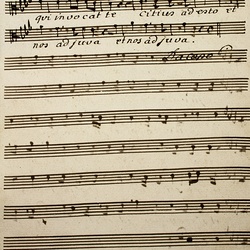 qui invocat te citius adesto et
nos adjuva et nos adjuva.